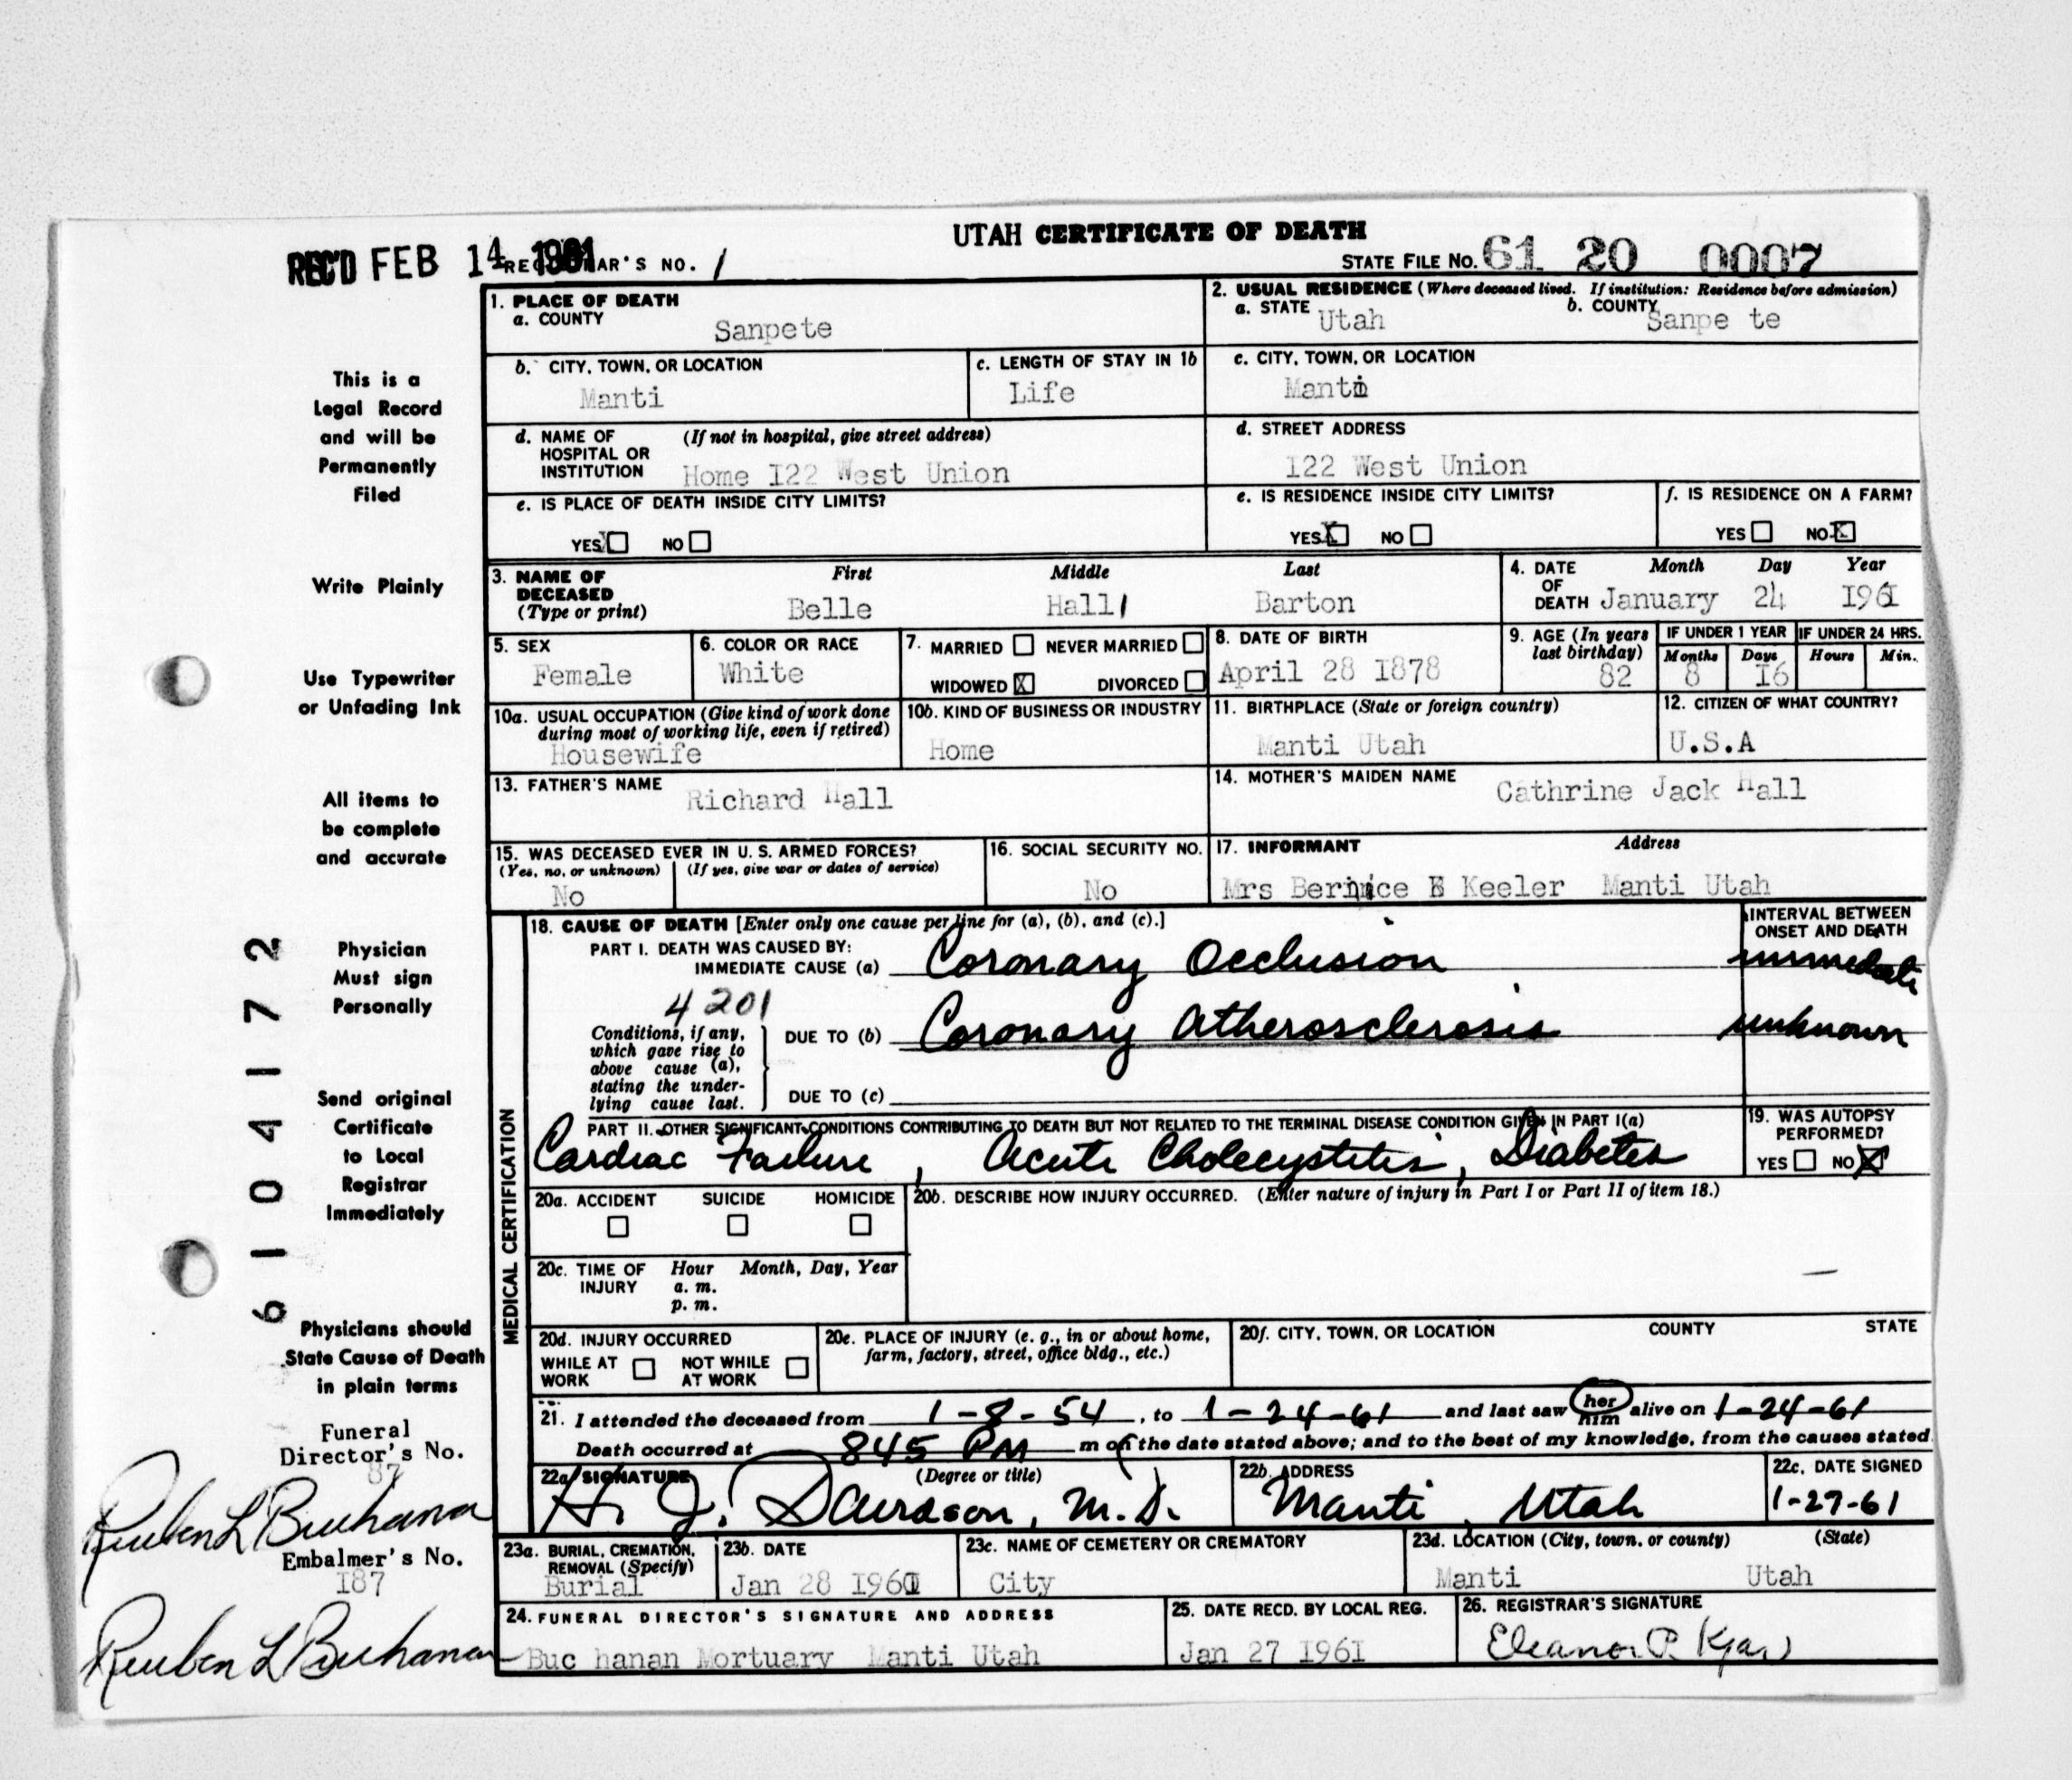 UTAH CERTIFICATE OF DEATH
REC'D FEB 14 1961 REGISTRAR'S NO. 1
STATE FILE NO. 61 20 0007
1. PLACE OF DEATH
a. COUNTY Sanpete
2. USUAL RESIDENCE (Where deceased lived. If institution: Residence before admission)
a. STATE Utah b. COUNTY Sanpe te
b. CITY, TOWN, OR LOCATION Manti
c. LENGTH OF STAY IN 1b Life
c. CITY, TOWN, OR LOCATION Manti
d. NAME OF HOSPITAL OR INSTITUTION (If not in hospital, give street address) Home I22 West Union
d. STREET ADDRESS I22 West Union
e. IS PLACE OF DEATH INSIDE CITY LIMITS?
YES X NO
e. IS RESIDENCE INSIDE CITY LIMITS?
YES X NO
f. IS RESIDENCE ON A FARM?
YES NO X
3. NAME OF DECEASED (Type or print)
First Middle Last
Belle Hall Barton
4. DATE OF DEATH Month Day Year
January 24 I961
5. SEX Female
6. COLOR OR RACE White
7. MARRIED NEVER MARRIED
WIDOWED X DIVORCED
8. DATE OF BIRTH April 28 I878
9. AGE (In years last birthday) 82
IF UNDER 1 YEAR Months 8 Days I6
IF UNDER 24 HRS. Hours Min.
10a. USUAL OCCUPATION (Give kind of work done during most of working life, even if retired) Housewife
10b. KIND OF BUSINESS OR INDUSTRY Home
11. BIRTHPLACE (State or foreign country) Manti Utah
12. CITIZEN OF WHAT COUNTRY? U.S.A
13. FATHER'S NAME Richard Hall
14. MOTHER'S MAIDEN NAME Cathrine Jack Hall
15. WAS DECEASED EVER IN U. S. ARMED FORCES?
(Yes, no, or unknown) (If yes, give war or dates of service)
No
16. SOCIAL SECURITY NO. No
17. INFORMANT Address
Mrs Bernice E Keeler Manti Utah
MEDICAL CERTIFICATION
18. CAUSE OF DEATH [Enter only one cause per line for (a), (b), and (c).]
INTERVAL BETWEEN ONSET AND DEATH
PART I. DEATH WAS CAUSED BY:
IMMEDIATE CAUSE (a) Coronary Occlusion immediate
4201
Conditions, if any, which gave rise to above cause (a), stating the underlying cause last.
DUE TO (b) Coronary Atherosclerosis unknown
DUE TO (c)
PART II. OTHER SIGNIFICANT CONDITIONS CONTRIBUTING TO DEATH BUT NOT RELATED TO THE TERMINAL DISEASE CONDITION GIVEN IN PART I(a)
Cardiac Failure, Acute Cholecystitis, Diabetes
19. WAS AUTOPSY PERFORMED?
YES NO X
20a. ACCIDENT SUICIDE HOMICIDE
20b. DESCRIBE HOW INJURY OCCURRED. (Enter nature of injury in Part I or Part II of item 18.)
20c. TIME OF INJURY Hour Month, Day, Year
a. m.
p. m.
20d. INJURY OCCURRED
WHILE AT WORK NOT WHILE AT WORK
20e. PLACE OF INJURY (e. g., in or about home, farm, factory, street, office bldg., etc.)
20f. CITY, TOWN, OR LOCATION COUNTY STATE
21. I attended the deceased from 1-8-54, to 1-24-61 and last saw her him alive on 1-24-61
Death occurred at 845 PM m on the date stated above; and to the best of my knowledge, from the causes stated
22a. SIGNATURE (Degree or title)
H. J. M.D.
22b. ADDRESS Manti, Utah
22c. DATE SIGNED 1-27-61
23a. BURIAL, CREMATION, REMOVAL (Specify) Burial
23b. DATE Jan 28 I961
23c. NAME OF CEMETERY OR CREMATORY City
23d. LOCATION (City, town, or county) (State)
Manti Utah
24. FUNERAL DIRECTOR'S SIGNATURE AND ADDRESS
Buc hanan Mortuary Manti Utah
25. DATE RECD. BY LOCAL REG. Jan 27 I96I
26. REGISTRAR'S SIGNATURE Eleanor P. Kjar
This is a
Legal Record
and will be
Permanently
Filed
Write Plainly
Use Typewriter
or Unfading Ink
All items to
be complete
and accurate
Physician
Must sign
Personally
Send original
Certificate
to Local
Registrar
Immediately
Physicians should
State Cause of Death
in plain terms
Funeral
Director's No.
87
Reuben L Buchanan
Embalmer's No.
I87
Reuben L Buchanan
61 04172